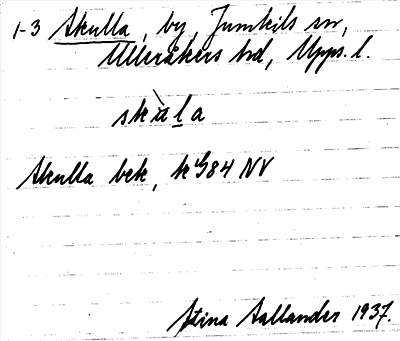 1-3 Skulla, by, Jumkils sn,
Ulleråkers hd, Upps. l.
skùla
Skulla bek, kG84 NV
Stina Sallander 1937.